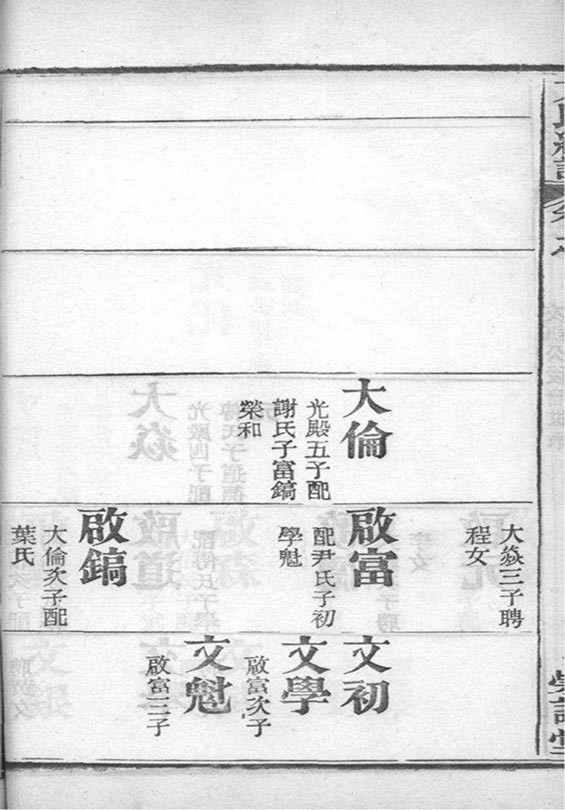 大倫
光殿五子配
謝氏子富鎬
榮和
大焱三子聘
程女
啟富
配尹氏子初
學魁
啟鎬
大倫次子配
葉氏
文初
文學
啟富次子
文魁
啟富三子